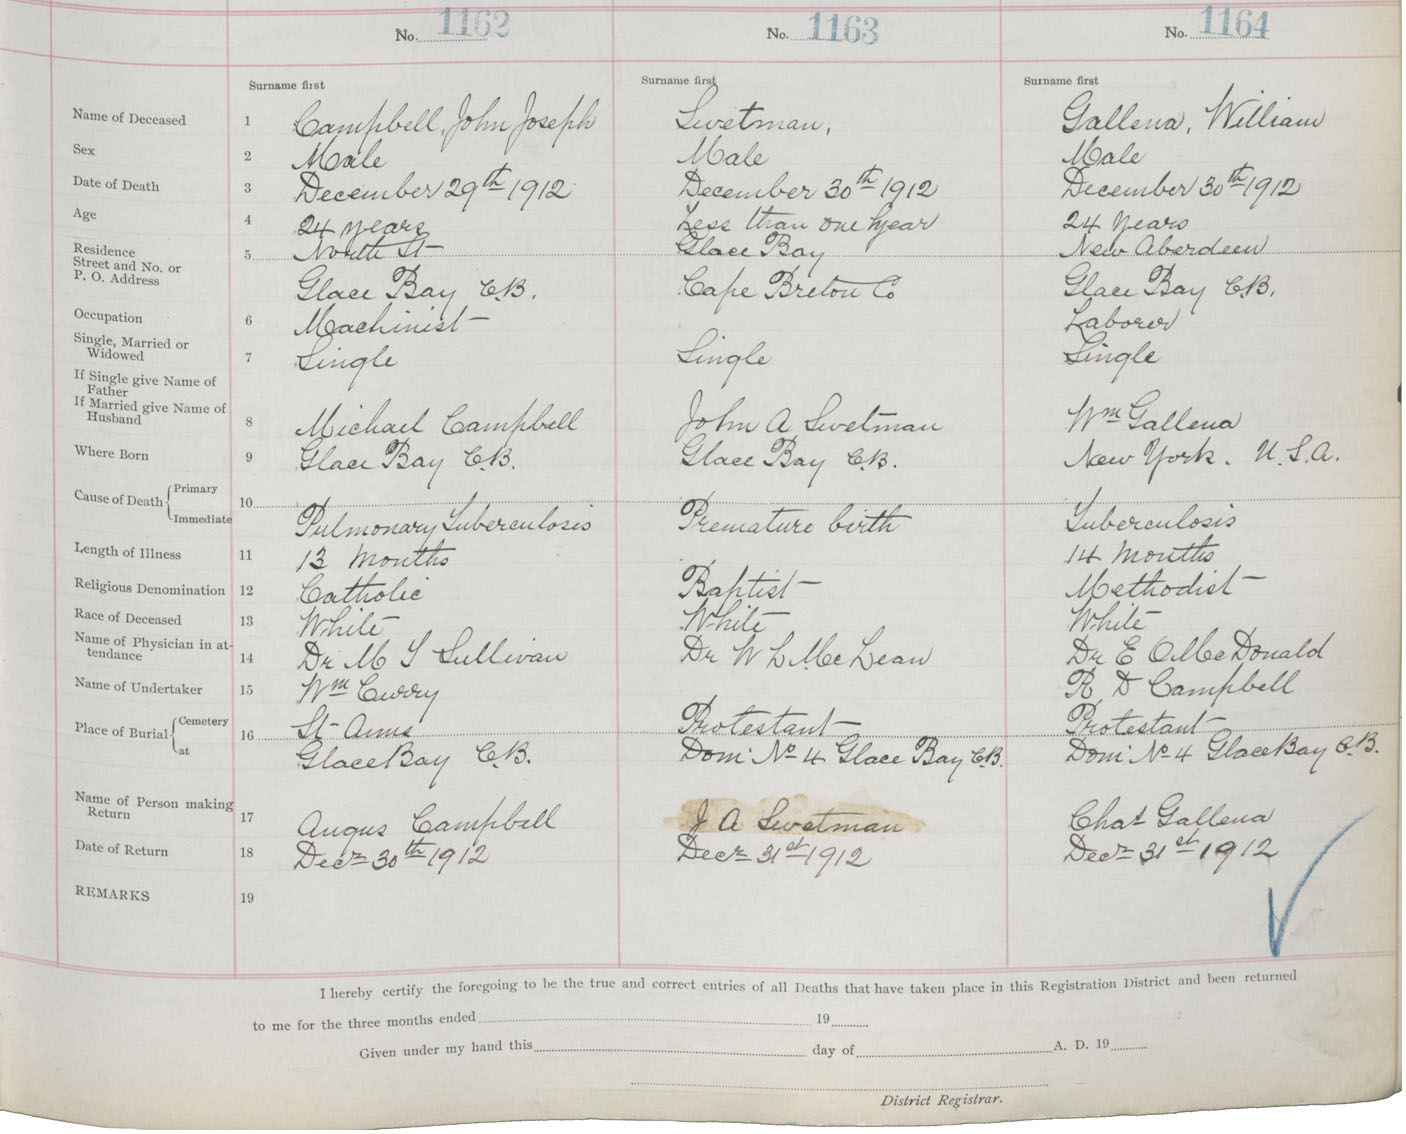 No. 1162 No. 1163 No. 1164
Surname first Surname first Surname first
Name of Deceased 1 Campbell, John Joseph Swetman, Gallena, William
Sex 2 Male Male Male
Date of Death 3 December 29th 1912 December 30th 1912 December 30th 1912
Age 4 24 years Less than one year 24 years
Residence 5 North St Glace Bay New Aberdeen
Street and No. or
P. O. Address Glace Bay C.B. Cape Breton Co Glace Bay C.B.
Occupation 6 Machinist Laborer
Single, Married or
Widowed 7 Single Single Single
If Single give Name of
Father
If Married give Name of
Husband 8 Michael Campbell John A Swetman Wm Gallena
Where Born 9 Glace Bay C.B. Glace Bay C.B. New York. U.S.A.
Cause of Death { Primary 10
Immediate Pulmonary Tuberculosis Premature birth Tuberculosis
Length of Illness 11 13 Months 14 Months
Religious Denomination 12 Catholic Baptist Methodist
Race of Deceased 13 White White White
Name of Physician in at-
tendance 14 Dr M T Sullivan Dr W L McLean Dr E O McDonald
Name of Undertaker 15 Wm Curry R D Campbell
Place of Burial { Cemetery 16 St Anns Protestant Protestant
at Glace Bay C.B. Dom: No 4 Glace Bay C.B. Dom: No 4 Glace Bay C.B.
Name of Person making
Return 17 Angus Campbell J A Swetman Chas Gallena
Date of Return 18 Decr 30th 1912 Decr 31st 1912 Decr 31st 1912
REMARKS 19
I hereby certify the foregoing to be the true and correct entries of all Deaths that have taken place in this Registration District and been returned
to me for the three months ended 19
Given under my hand this day of A. D. 19
District Registrar.